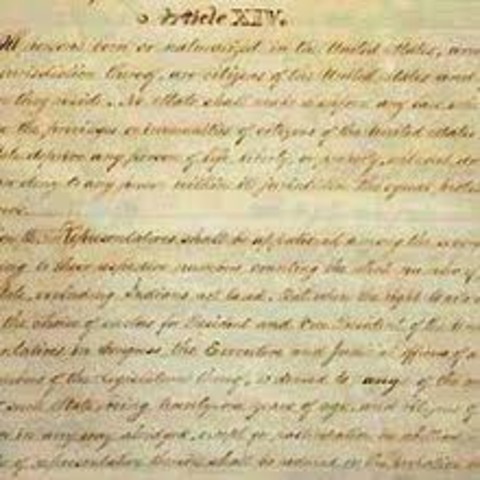 Article XIV.
All persons born or naturalized in the United States, and
jurisdiction thereof, are citizens of the United States and
they reside. No State shall make or enforce any law
the privileges or immunities of citizens of the United States
deprive any person of life, liberty, or property, without
to any person within its jurisdiction the equal
Representatives shall be apportioned among the several
to their respective numbers, counting the whole number of
excluding Indians not taxed. But when the right to vote
the choice of electors for President and Vice President of the
in Congress, the Executive and Judicial officers of a
of the Legislature thereof, is denied to any of the
such State, being twenty-one years of age, and citizens of
in any way abridged, except for participation in rebellion
of representation therein shall be reduced in the proportion